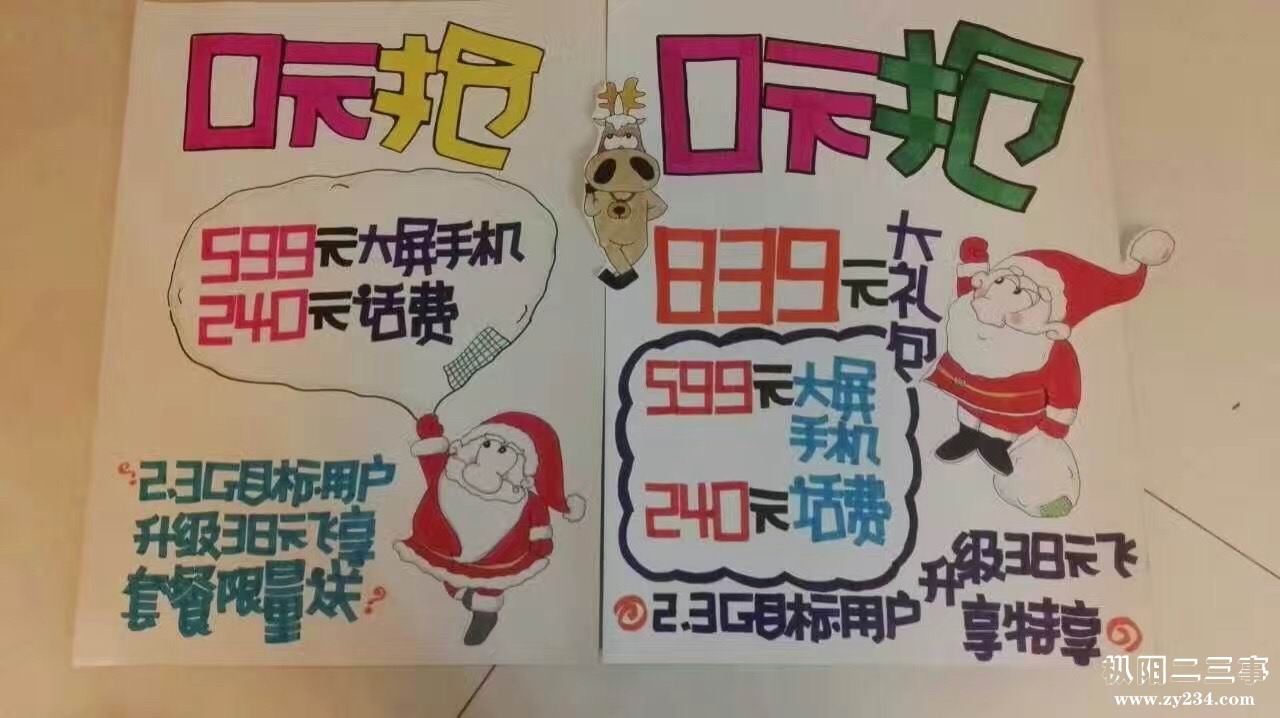 吓抢
599元大屏手机
240元话费
2.3G目标用户
升级38元飞享
套餐限量送
吓抢
839元
大礼包
599元大屏
手机
240元话费
2.3G目标用户
升级38元飞
享特享
枞阳二三事
www.zy234.com